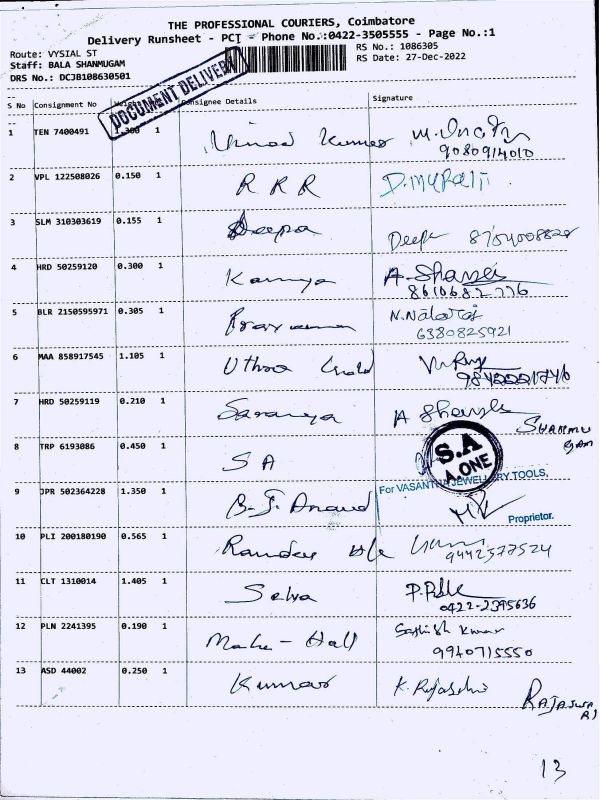 THE PROFESSIONAL COURIERS, Coimbatore
Delivery Runsheet - PCT - Phone No.:0422-3505555 - Page No.:1
Route: VYSIAL ST
RS No.: 1086305
Staff: BALA SHANMUGAM
RS Date: 27-Dec-2022
DRS No.: DCJB108630501
DOCUMENT DELIVERY
S No Consignment No Weight Consignee Details Signature
1 TEN 7400491 1.300 1 Vinod Kumar
9080914010
2 VPL 122508026 0.150 1 R R R D.MURALI
3 SLM 310303619 0.155 1 Deepa Deepa
4 HRD 50259120 0.300 1 Kamya A.
8610682776
5 BLR 2150595971 0.305 1 N.Nataraj
6380825921
6 MAA 858917545 1.105 1 Uthra Gold
7 HRD 50259119 0.210 1 Saranya A
SHANMU
GAM
8 TRP 6193086 0.450 1 S A
S.A
A.ONE
For VASANTHA JEWELLERY TOOLS,
9 JPR 502364228 1.350 1 B.S. Anand
Proprietor.
10 PLI 200180190 0.565 1
9442577524
11 CLT 1310014 1.405 1 Selva
0422-2395636
12 PLN 2241395 0.190 1 Maha-Hall Sathish Kumar
9940715550
13 ASD 44002 0.250 1 Kumar K.
13